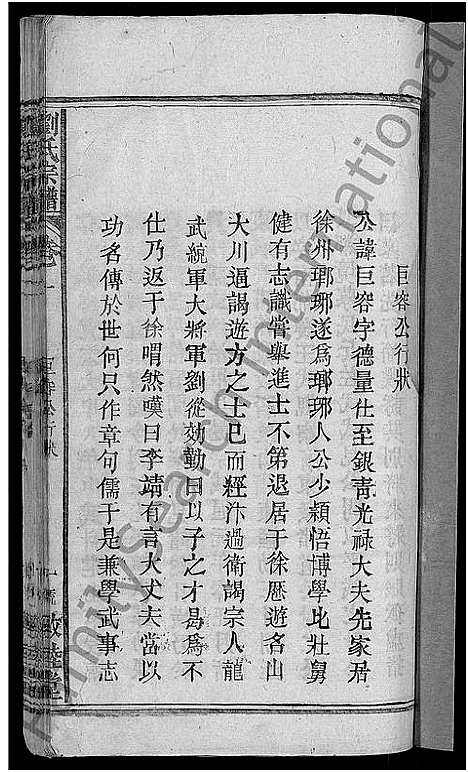 巨容公行狀
公諱巨容字德量仕至銀青光祿大夫先家居
徐州瑯琊遂爲瑯琊人公少穎悟博學比壯勇
健有志識嘗舉進士不第退居于徐歷遊名山
大川遍謁遊方之士已而經汴過衛謁宗人龍
武統軍大將軍劉從効勸曰以子之才曷爲不
仕乃返于徐喟然嘆曰李靖有言大丈夫當以
功名傳於世何只作章句儒于是兼學武事志
劉氏宗譜 卷一
巨容公行狀
敦睦堂
FamilySearch International